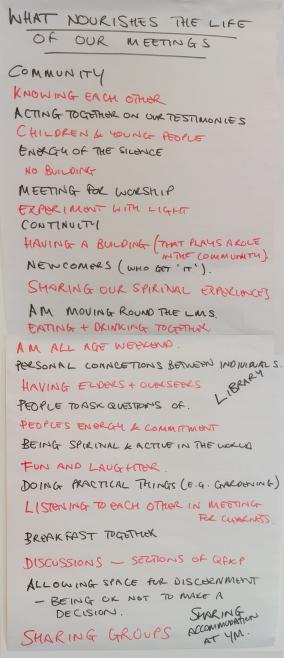 WHAT NOURISHES THE LIFE
OF OUR MEETINGS
COMMUNITY
KNOWING EACH OTHER
ACTING TOGETHER ON OUR TESTIMONIES
CHILDREN & YOUNG PEOPLE
ENERGY OF THE SILENCE
NO BUILDING
MEETING FOR WORSHIP
EXPERIMENT WITH LIGHT
CONTINUITY
HAVING A BUILDING (THAT PLAYS A ROLE
IN THE COMMUNITY)
NEWCOMERS (WHO GET 'IT').
SHARING OUR SPIRINAL EXPERIENCES
AM MOVING ROUND THE LMS.
EATING + DRINKING TOGETHER
AM ALL AGE WEEKEND.
PERSONAL CONNCETIONS BETWEEN INDIVIDUALS.
HAVING ELDERS + OVERSEERS
LIBRARY
PEOPLE TO ASK QUESTIONS OF.
PEOPLES ENERGY & COMMITMENT
BEING SPIRINAL & ACTIVE IN THE WORLD
FUN AND LAUGHTER.
DOING PRACTICAL THINGS (E.G. GARDENING)
LISTENING TO EACH OTHER IN MEETING
FOR CLEARNESS.
BREAKFAST TOGETHER
DISCUSSIONS – SECTIONS OF QF&P
ALLOWING SPACE FOR DISCERNMENT
– BEING OR NOT TO MAKE A
DECISION.
SHARING
ACCOMMODATION
AT YM.
SHARING GROUPS